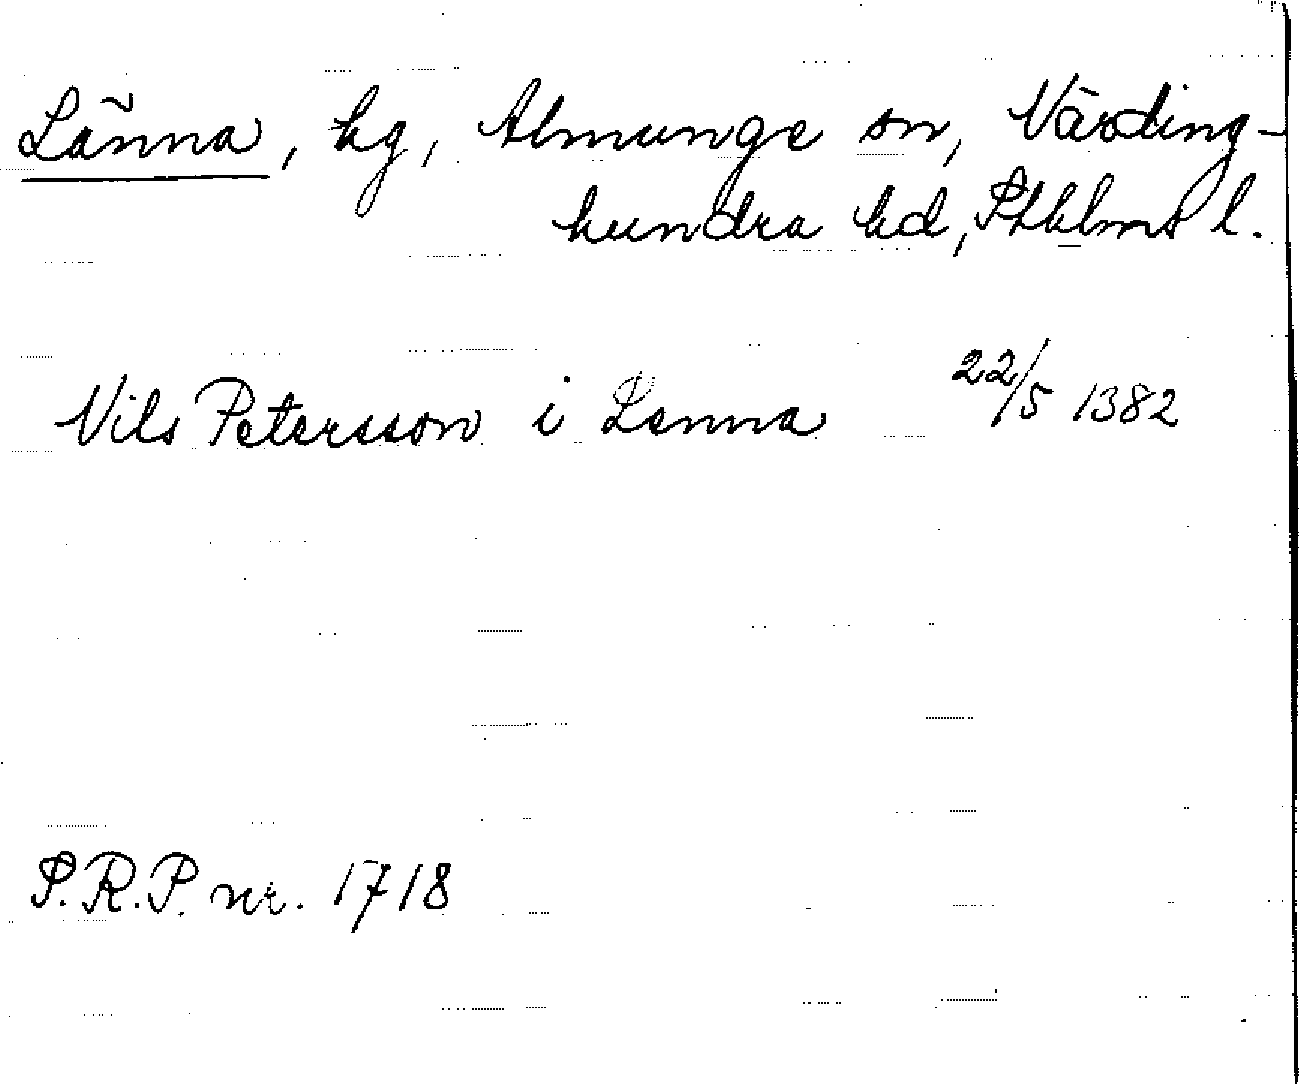 Länna, hg, Almunge sn, Närding-
hundra hd, Sthlms l.
Nils Petersson i Lenna 22/5 1382
S.R.P. nr. 1718